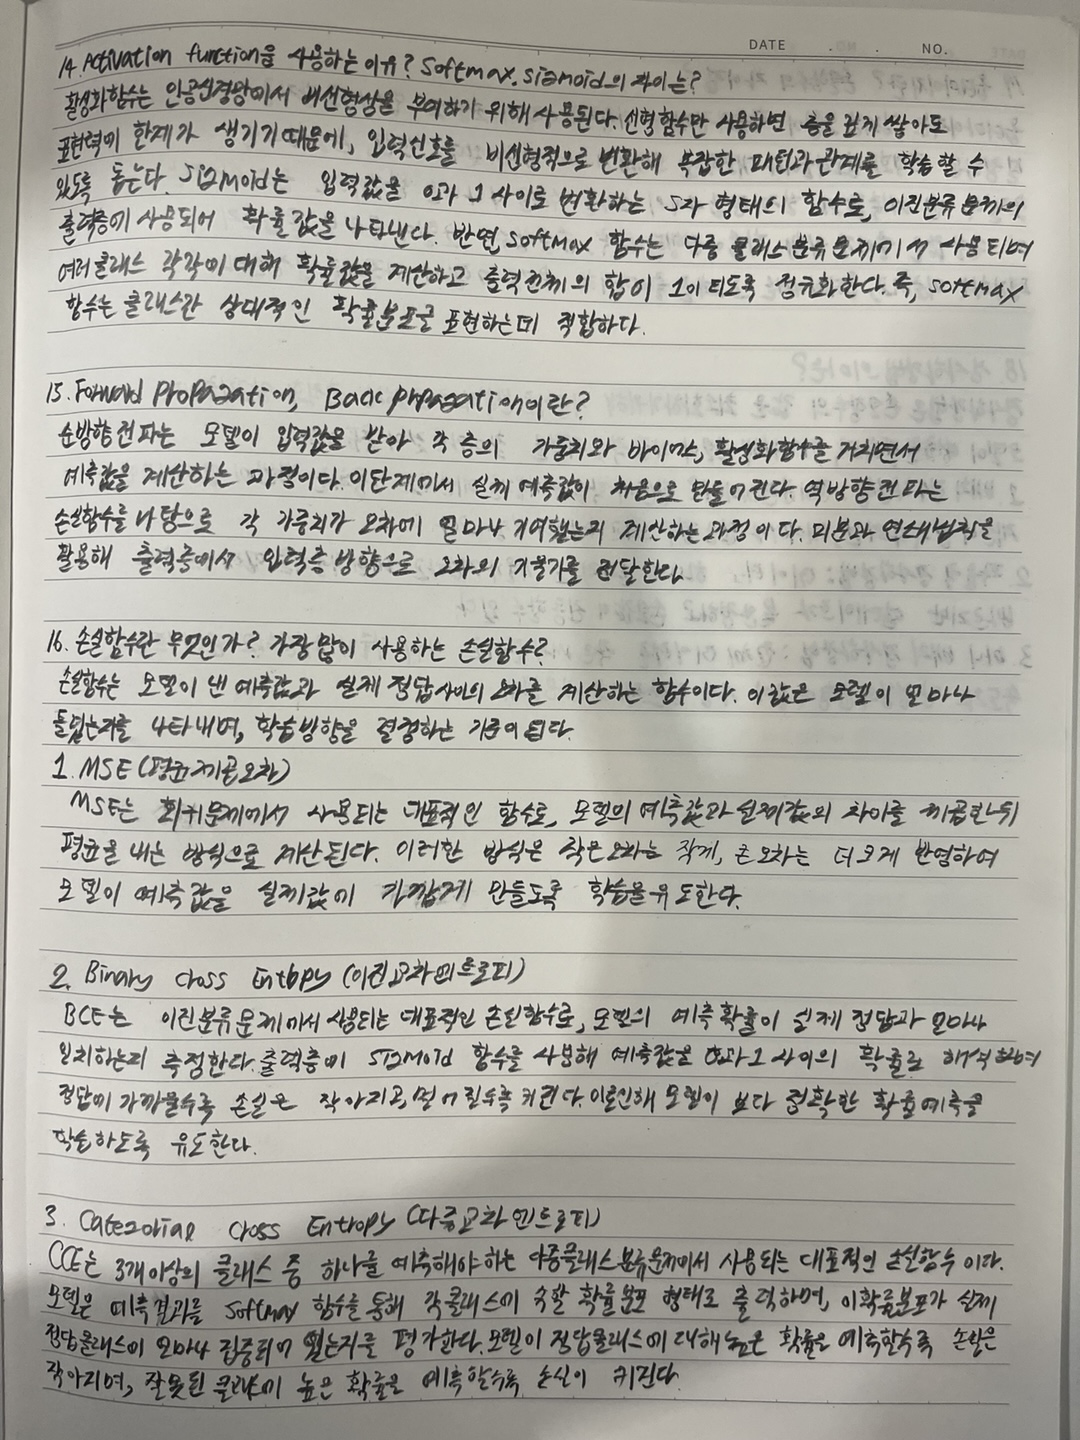 DATE . . NO.
14. Activation function을 사용하는 이유? Softmax, sigmoid의 차이는?
활성화함수는 인공신경망에서 비선형성을 부여하기 위해 사용된다. 선형함수만 사용하면 층을 깊게 쌓아도
표현력에 한계가 생기기 때문에, 입력신호를 비선형적으로 변환해 복잡한 패턴과 관계를 학습할 수
있도록 돕는다. Sigmoid는 입력값을 0과 1 사이로 변환하는 S자 형태의 함수로, 이진분류 문제의
출력층에 사용되어 확률값을 나타낸다. 반면, softmax 함수는 다중 클래스 분류 문제에서 사용되며
여러 클래스 각각에 대해 확률값을 계산하고 출력전체의 합이 1이 되도록 정규화한다. 즉, softmax
함수는 클래스간 상대적인 확률분포를 표현하는데 적합하다.
15. Forward Propagation, Back propagation이란?
순방향전파는 모델이 입력값을 받아 각 층의 가중치와 바이어스, 활성화함수를 거치면서
예측값을 계산하는 과정이다. 이단계에서 실제 예측값이 처음으로 만들어진다. 역방향전파는
손실함수를 바탕으로 각 가중치가 오차에 얼마나 기여했는지 계산하는 과정이다. 미분과 연쇄법칙을
활용해 출력층에서 입력층 방향으로 오차의 기울기를 전달한다
16. 손실함수란 무엇인가? 가장 많이 사용하는 손실함수?
손실함수는 모델이 낸 예측값과 실제 정답사이의 오차를 계산하는 함수이다. 이값은 모델이 얼마나
틀렸는지를 나타내며, 학습방향을 결정하는 기준이 된다.
1. MSE (평균제곱오차)
MSE는 회귀문제에서 사용되는 대표적인 함수로, 모델의 예측값과 실제값의 차이를 제곱한뒤
평균을 내는 방식으로 계산된다. 이러한 방식은 작은오차는 작게, 큰 오차는 더 크게 반영하여
모델이 예측값을 실제값에 가깝게 만들도록 학습을 유도한다.
2. Binary Cross Entropy (이진교차엔트로피)
BCE는 이진분류문제에서 사용되는 대표적인 손실함수로, 모델의 예측 확률이 실제 정답과 얼마나
일치하는지 측정한다. 출력층에 sigmoid 함수를 사용해 예측값을 0과 1 사이의 확률로 해석하여
정답에 가까울수록 손실은 작아지고, 멀어질수록 커진다. 이로인해 모델이 보다 정확한 확률예측을
학습하도록 유도한다.
3. Categorial Cross Entropy (다중교차엔트로피)
CCE는 3개이상의 클래스 중 하나를 예측해야 하는 다중클래스 분류문제에서 사용되는 대표적인 손실함수이다.
모델은 예측결과를 softmax 함수를 통해 각 클래스에 속할 확률분포 형태로 출력하며, 이확률분포가 실제
정답클래스에 얼마나 집중되어 있는지를 평가한다. 모델이 정답클래스에 대해 높은 확률을 예측할수록 손실은
작아지며, 잘못된 클래스에 높은 확률을 예측할수록 손실이 커진다.